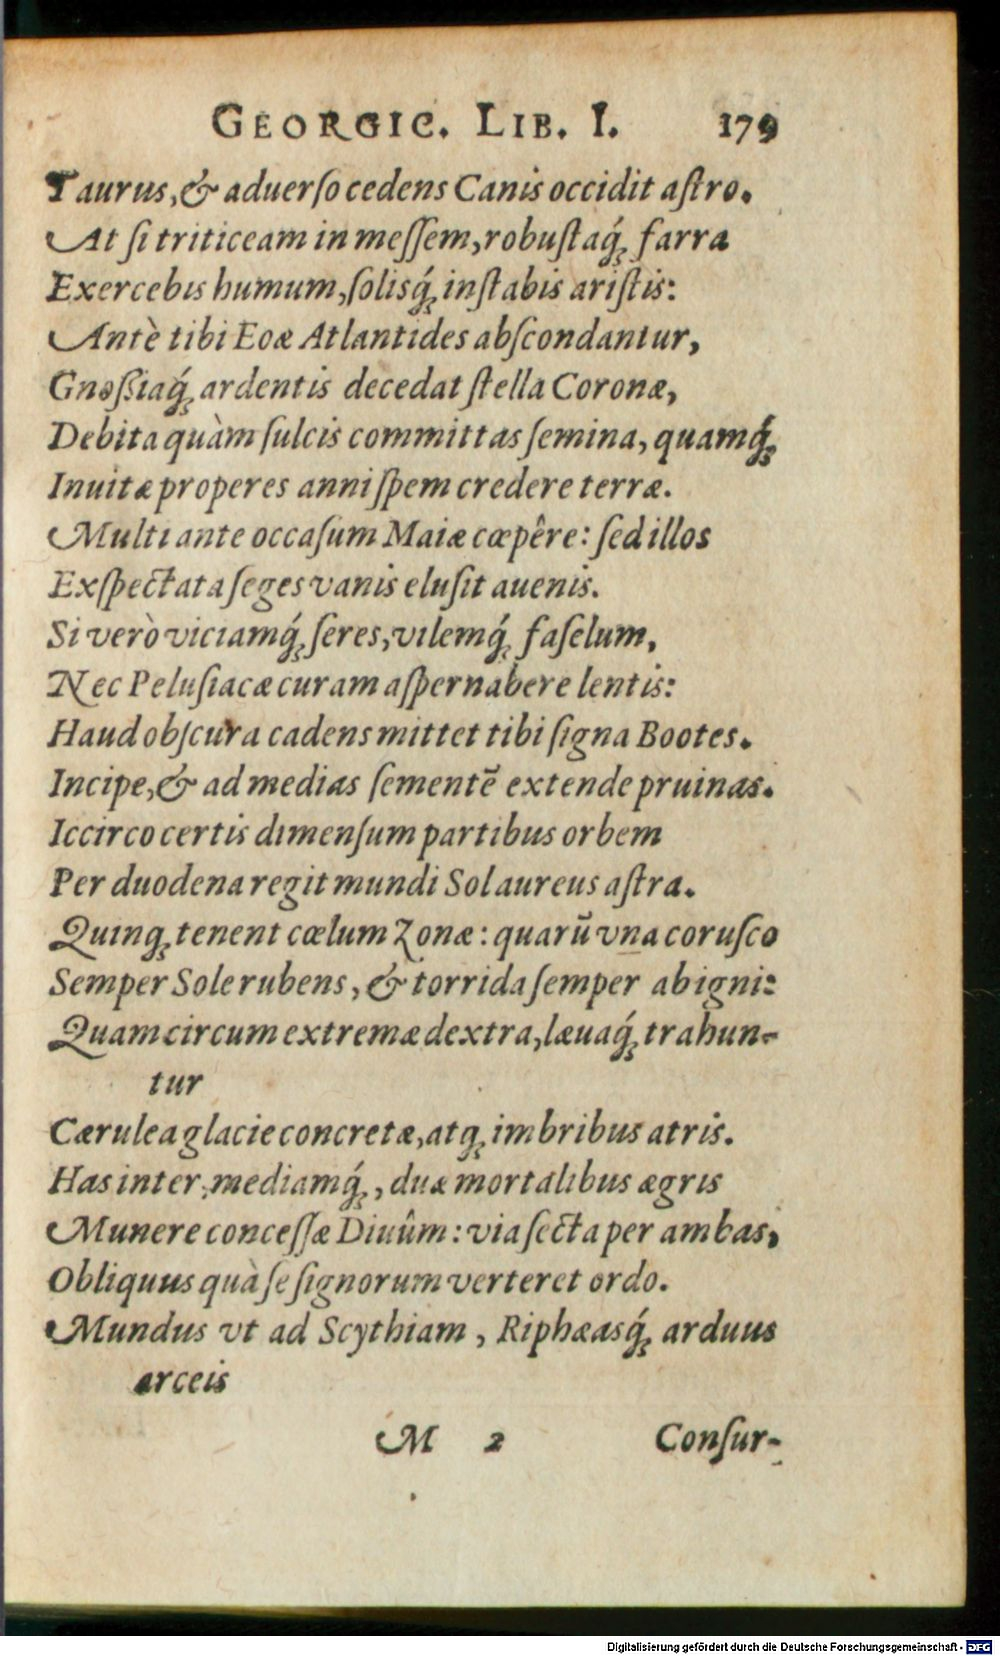 GEORGIC. LIB. I. 179
Taurus, & aduerſo cedens Canis occidit aſtro.
At ſi triticeam in meſſem, robuſtaq́; farra
Exercebis humum, ſolisq́; inſtabis ariſtis:
Antè tibi Eoæ Atlantides abſcondantur,
Gnoßiaq́; ardentis decedat ſtella Coronæ,
Debita quàm ſulcis committas ſemina, quamq́;
Inuitæ properes anni ſpem credere terræ.
Multi ante occaſum Maiæ cœpêre: ſed illos
Exſpectata ſeges vanis eluſit auenis.
Si verò viciamq́; ſeres, vilemq́; faſelum,
Nec Peluſiacæ curam aſpernabere lentis:
Haud obſcura cadens mittet tibi ſigna Bootes.
Incipe, & ad medias ſementē extende pruinas.
Iccirco certis dimenſum partibus orbem
Per duodena regit mundi Sol aureus aſtra.
Quinq; tenent cœlum Zonæ: quarū vna coruſco
Semper Sole rubens, & torrida ſemper ab igni:
Quam circum extremæ dextra, læuaq́; trahun-
tur
Cærulea glacie concretæ, atq; imbribus atris.
Has inter, mediamq́;, duæ mortalibus ægris
Munere conceſſæ Diuûm: via ſecta per ambas,
Obliquus quà ſe ſignorum verteret ordo.
Mundus vt ad Scythiam, Riphæasq́; arduus
arceis
M 2 Conſur-
Digitalisierung gefördert durch die Deutsche Forschungsgemeinschaft - DFG